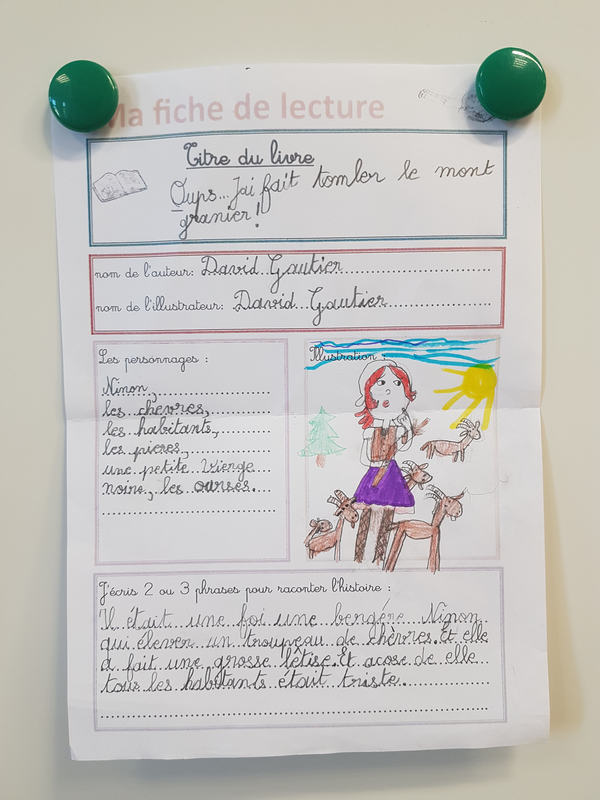 Ma fiche de lecture
Titre du livre
Oups...J'ai fait tomber le mont
granier!
nom de l'auteur: David Gautier
nom de l'illustrateur: David Gautier
Les personnages :
Ninon,
les chevres,
les habitants,
les pieres,
une petite Vierge
noire, les ourses.
Illustration :
J'écris 2 ou 3 phrases pour raconter l'histoire :
Il était une foi une bergére Ninon
qui élever un troupveau de chèvres. Et elle
a fait une grosse bêtise. Et acose de elle
tous les habitants était triste.